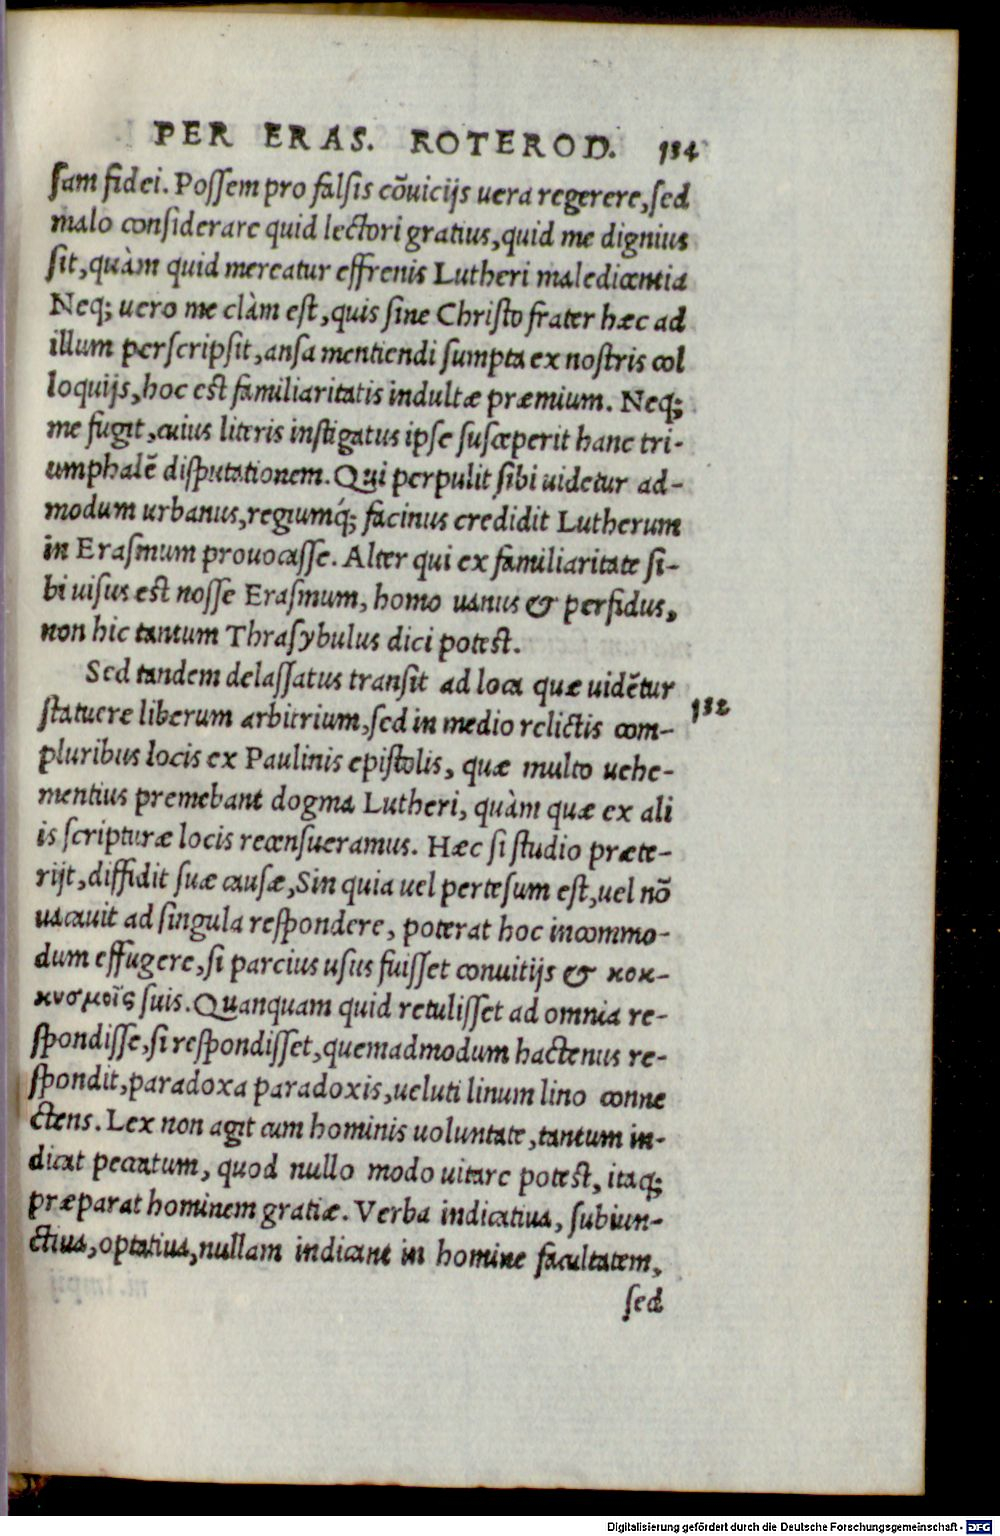 PER ERAS. ROTEROD. 134
sam fidei. Possem pro falsis cõuicijs uera regerere, sed
malo considerare quid lectori gratius, quid me dignius
sit, quàm quid mereatur effrenis Lutheri maledicentia
Neq; uero me clàm est, quis sine Christo frater hæc ad
illum perscripsit, ansa mentiendi sumpta ex nostris col
loquijs, hoc est familiaritatis indultæ præmium. Neq;
me fugit, cuius literis instigatus ipse susceperit hanc tri-
umphalẽ disputationem. Qui perpulit sibi uidetur ad-
modum urbanus, regiumq́; facinus credidit Lutherum
in Erasmum prouocasse. Alter qui ex familiaritate si-
bi uisus est nosse Erasmum, homo uanus & perfidus,
non hic tantum Thrasybulus dici potest.
Sed tandem delassatus transit ad loca quæ uidẽtur
132
statuere liberum arbitrium, sed in medio relictis com-
pluribus locis ex Paulinis epistolis, quæ multo uehe-
mentius premebant dogma Lutheri, quàm quæ ex ali
is scripturæ locis recensueramus. Hæc si studio præte-
rijt, diffidit suæ causæ, Sin quia uel pertesum est, uel nõ
uacauit ad singula respondere, poterat hoc incommo-
dum effugere, si parcius usus fuisset conuitijs & κοκ-
κυσμοῖς suis. Quanquam quid retulisset ad omnia re-
spondisse, si respondisset, quemadmodum hactenus re-
spondit, paradoxa paradoxis, ueluti linum lino conne
ctens. Lex non agit cum hominis uoluntate, tantum in-
dicat peccatum, quod nullo modo uitare potest, itaq;
præparat hominem gratiæ. Verba indicatiua, subiun-
ctiua, optatiua, nullam indicant in homine facultatem,
sed
Digitalisierung gefördert durch die Deutsche Forschungsgemeinschaft - DFG